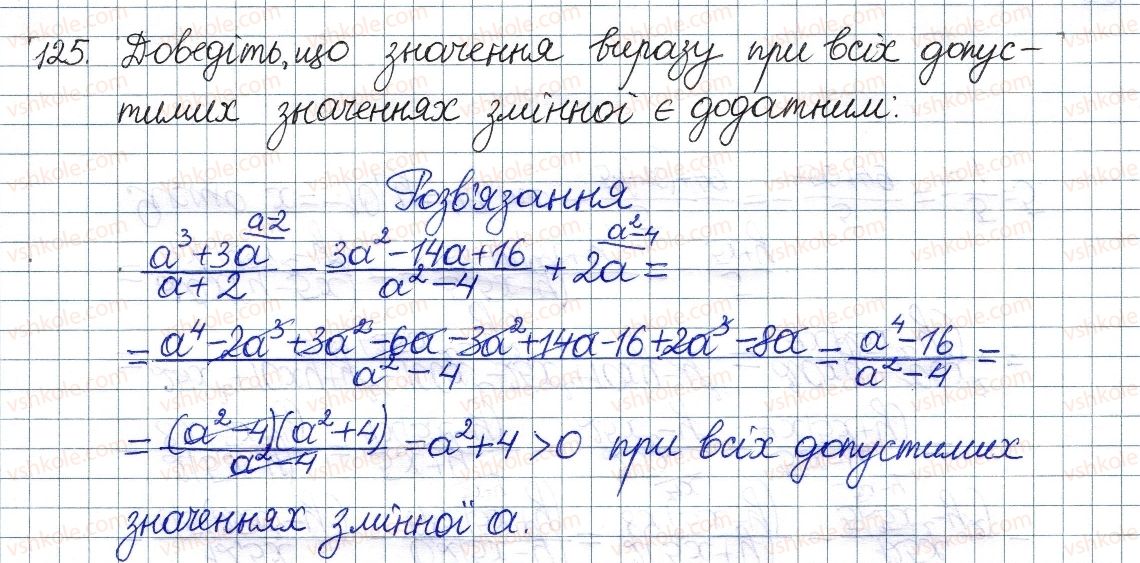 125. Доведіть, що значення виразу при всіх допус-
тимих значеннях змінної є додатним:
Розв'язання
(a³+3a)/(a+2) ^(a-2) - (3a²-14a+16)/(a²-4) + 2a ^(a²-4) =
= (a⁴-2a³+3a²-6a-3a²+14a-16+2a³-8a)/(a²-4) = (a⁴-16)/(a²-4) =
= ((a²-4)(a²+4))/(a²-4) = a²+4 > 0 при всіх допустимих
значеннях змінної a.